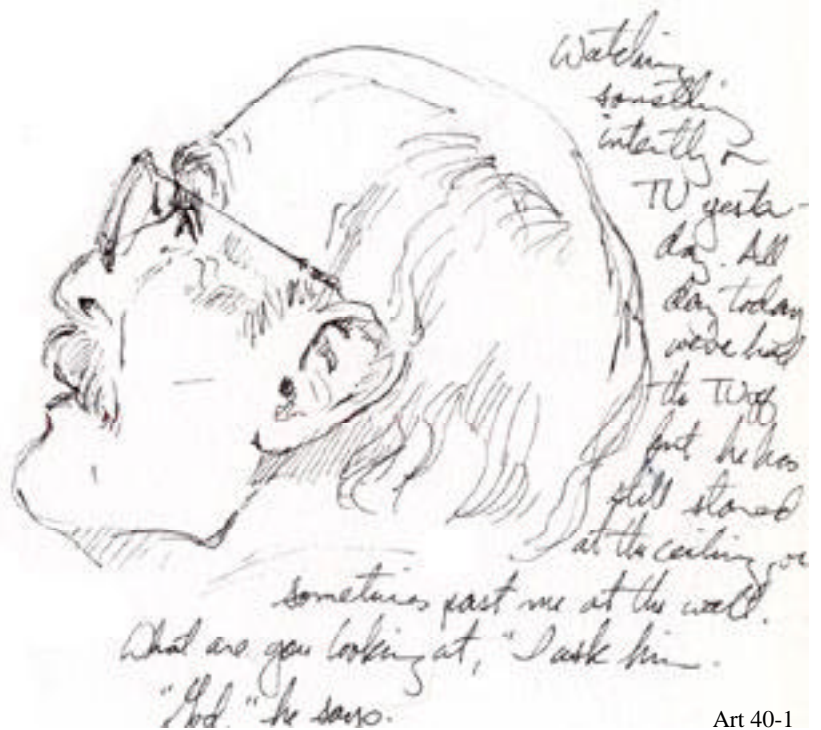 Watching
something
intently on
TV yester-
day. All
day today
we've had
the TV off
but he has
still stared
at the ceiling, or
sometimes past me at the wall.
What are you looking at," I ask him.
"God," he says.
Art 40-1